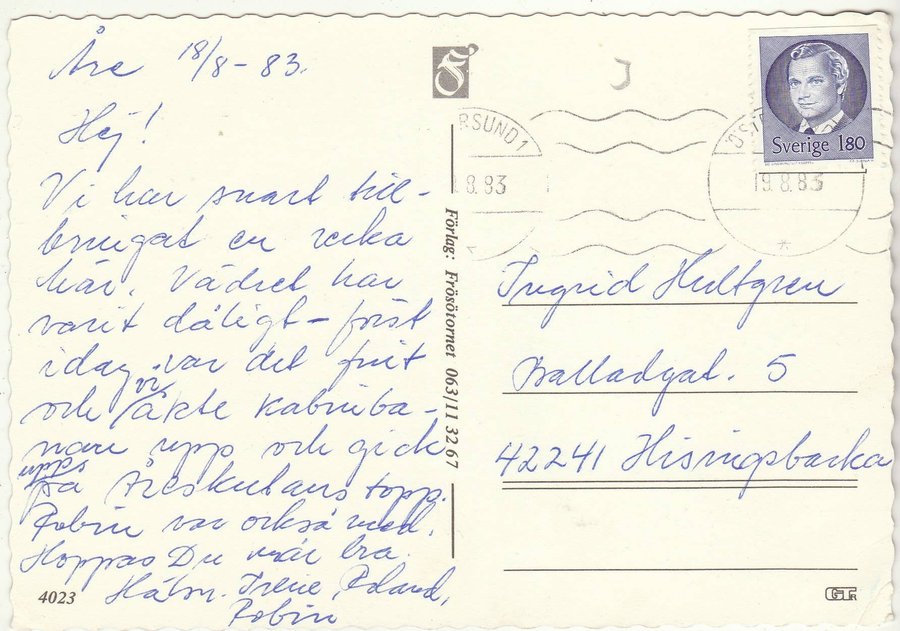 Åre 18/8-83.
Hej!
Vi har snart till-
bringat en vecka
här. Vädret har
varit dåligt - först
idag var det fint
och vi åkte kabinba-
nan upp och gick
uppås
på Åreskutans topp.
Robin var också med.
Hoppas Du mår bra.
Hälsn. Irene, Roland,
Robin
4023
Förlag: Frösötornet 063/11 32 67
RSUND 1
8.83
ÖST
19.8.83
Sverige 180
Ingrid Hultgren
Balladgat. 5
42241 Hisingsbacka
GT